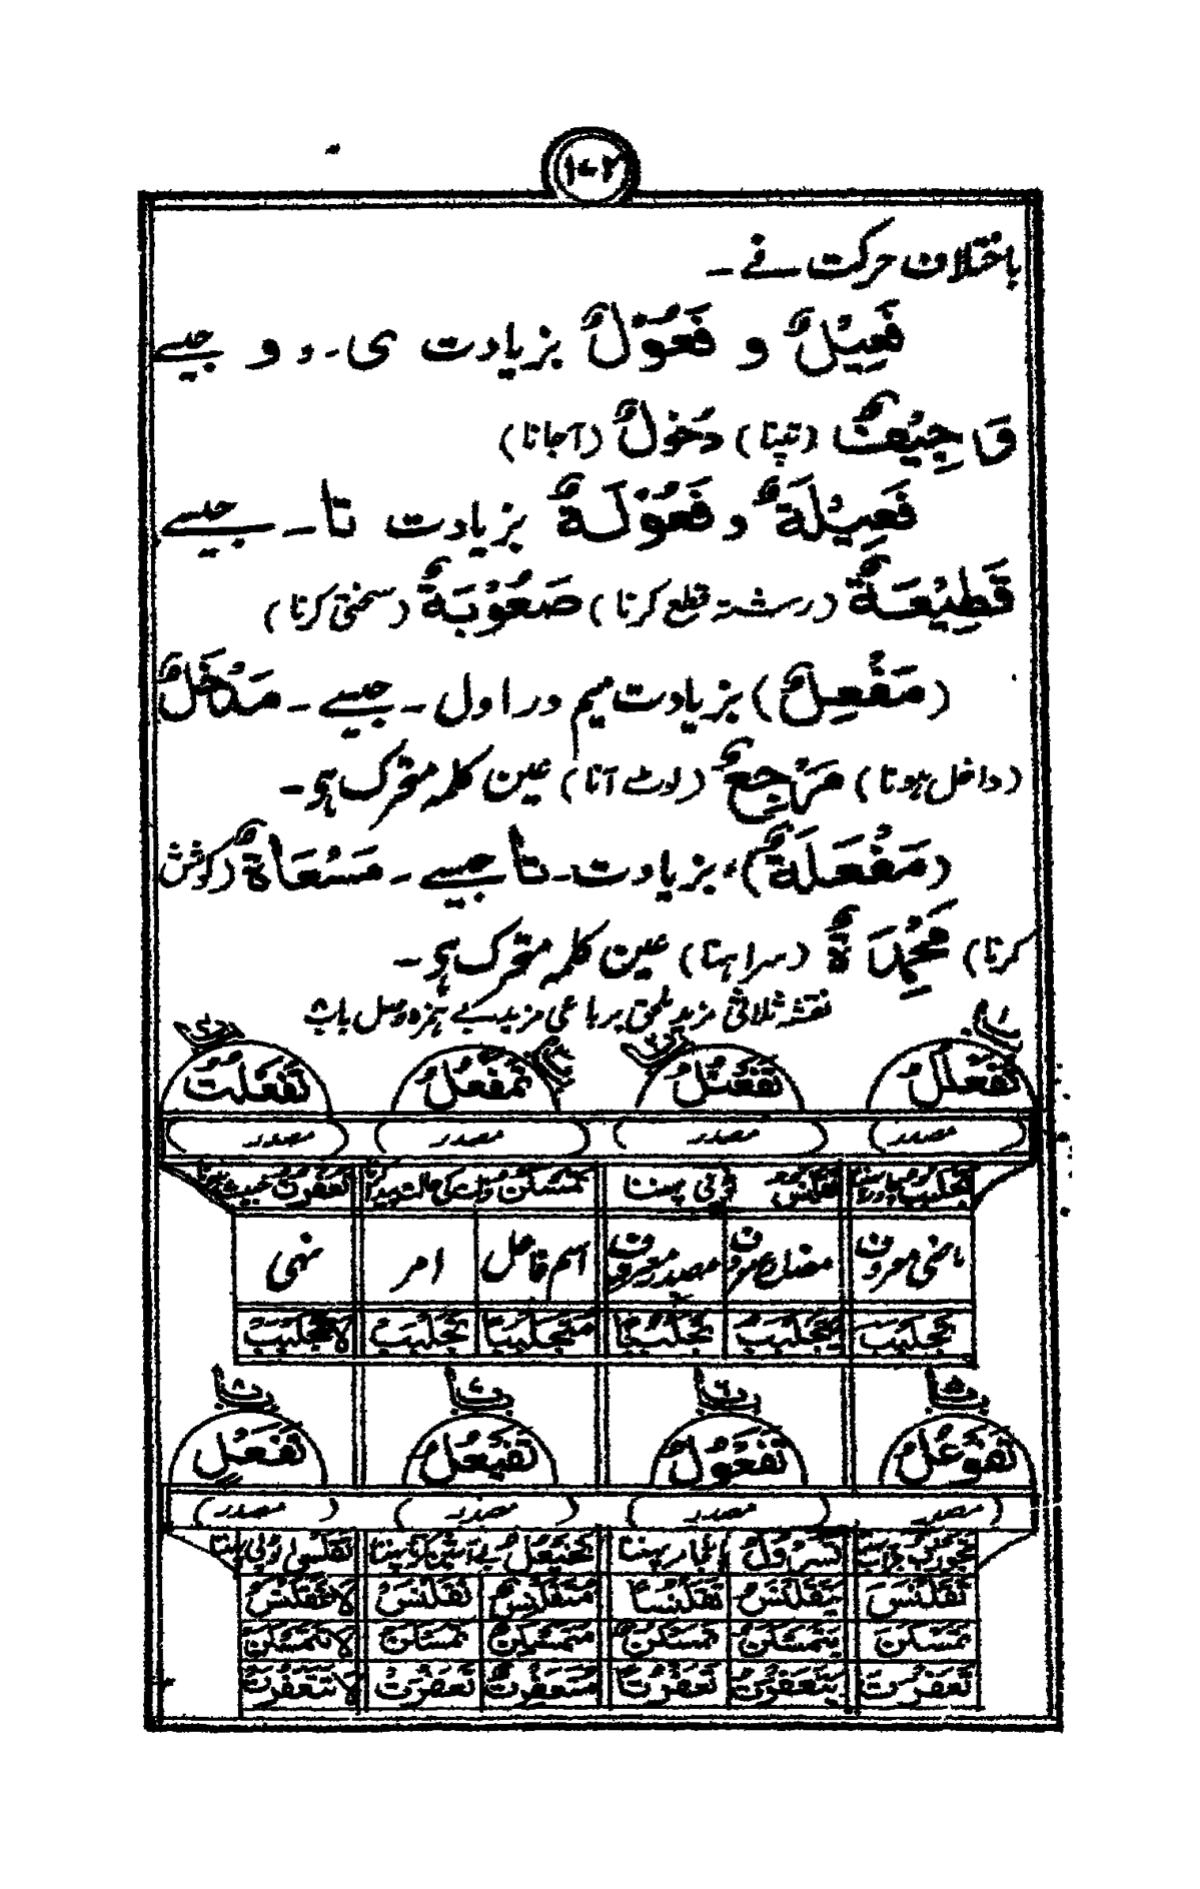 ۱۰۲
باختلاف حرکت فے۔
فَعِیْلٌ و فَعُوْلٌ بزیادت ی۔ و و جیسے
وَجِیْفٌ (تپنا) دُخُولٌ (آجانا)
فَعِیْلَةٌ و فَعُوْلَةٌ بزیادت تا۔ جیسے
قَطِیْعَةٌ (رشتہ قطع کرنا) صَعُوْبَةٌ (سختی کرنا)
(مَفْعِلٌ) بزیادت میم در اول۔ جیسے۔ مَدْخَلٌ
(داخل ہونا) مَرْجِعٌ (لوٹ آنا) عین کلمہ متحرک ہو۔
(مَفْعَلَةٌ) بزیادت۔ تا جیسے۔ مَسْعَاةٌ (کوشش
کرنا) مَحْمِدَةٌ (سراہنا) عین کلمہ متحرک ہو۔
نقشہ ثلاثی مزید ملحق برباعی مزید بے ہمزہ وصل باب
باب ۱ باب ۲ باب ۳ باب ۴
تَفَعْلُلٌ تَفَعْنُلٌ تَمَفْعُلٌ تَفَعْلُتٌ
مصدر مصدر مصدر مصدر
تَجَلْبُبٌ تَقَلْنُسٌ ٹوپی پہننا تَمَسْكُنٌ تَعَفْرُتٌ
ماضی معروف مضارع معروف مصدر معروف اسم فاعل امر نہی
تَجَلْبَبَ يَتَجَلْبَبُ تَجَلْبُبًا مُتَجَلْبِبًا تَجَلْبَبْ لَا تَجَلْبَبْ
باب ۵ باب ۶ باب ۷ باب ۸
تَفَوْعُلٌ تَفَعْوُلٌ تَفَيْعُلٌ تَفَعْلٍ
مصدر مصدر مصدر مصدر
تَجَوْرُبٌ تَسَرْوُلٌ شلوار پہننا تَخَيْعُلٌ بے آستین کرتا پہننا تَقَلْسٍ ٹوپی پہننا
تَقَلْنَسَ يَتَقَلْنَسُ تَقَلْنُسًا مُتَقَلْنِسٌ تَقَلْنَسْ لَا تَقَلْنَسْ
تَمَسْكَنَ يَتَمَسْكَنُ تَمَسْكُنًا مُتَمَسْكِنٌ تَمَسْكَنْ لَا تَتَمَسْكَنْ
تَعَفْرَتَ يَتَعَفْرَتُ تَعَفْرُتًا مُتَعَفْرِتٌ تَعَفْرَتْ لَا تَتَعَفْرَتْ